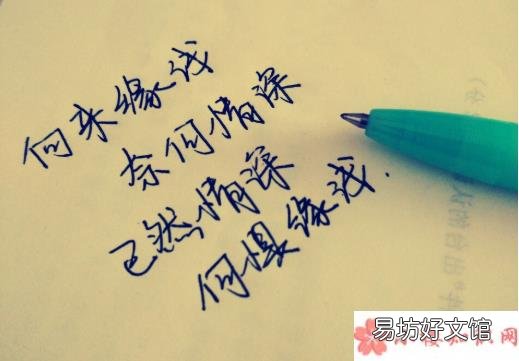 何来缘浅
奈何情深
已然情深
何惧缘浅.
易坊好文馆